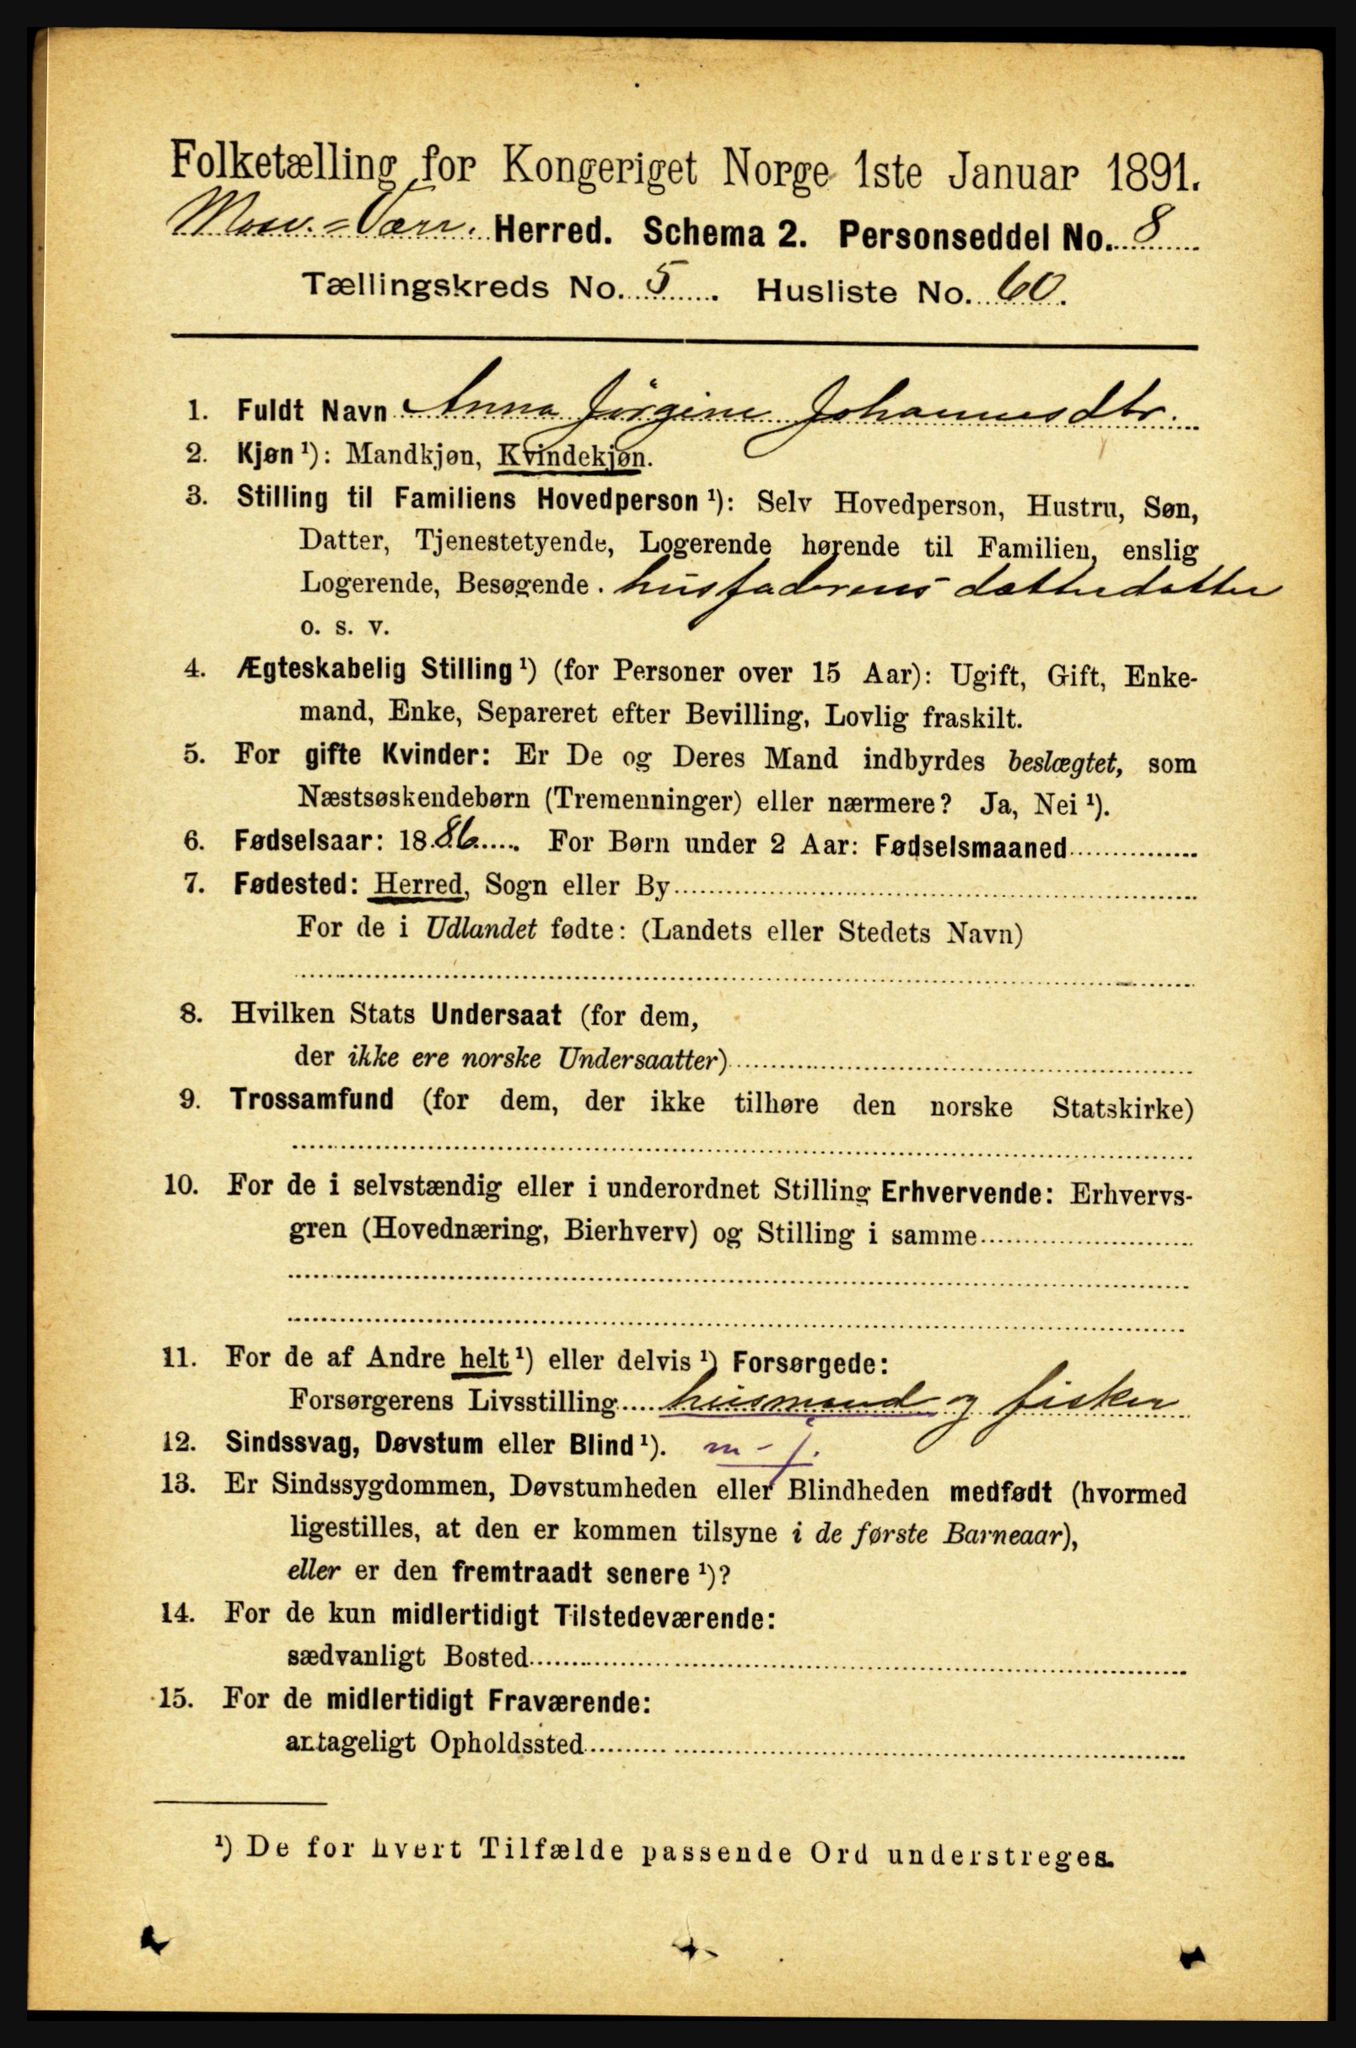 Folketælling for Kongeriget Norge 1ste Januar 1891.
Mosv.=Værr. Herred. Schema 2. Personseddel No. 8
Tællingskreds No. 5. Husliste No. 60.
1. Fuldt Navn Anna Jörgine Johannesdtr.
2. Kjøn ¹): Mandkjøn, Kvindekjøn.
3. Stilling til Familiens Hovedperson ¹): Selv Hovedperson, Hustru, Søn,
Datter, Tjenestetyende, Logerende hørende til Familien, enslig
Logerende, Besøgende. husfaderens datterdatter
o. s. v.
4. Ægteskabelig Stilling ¹) (for Personer over 15 Aar): Ugift, Gift, Enke-
mand, Enke, Separeret efter Bevilling, Lovlig fraskilt.
5. For gifte Kvinder: Er De og Deres Mand indbyrdes beslægtet, som
Næstsøskendebørn (Tremenninger) eller nærmere? Ja, Nei ¹).
6. Fødselsaar: 1886. For Børn under 2 Aar: Fødselsmaaned
7. Fødested: Herred, Sogn eller By
For de i Udlandet fødte: (Landets eller Stedets Navn)
8. Hvilken Stats Undersaat (for dem,
der ikke ere norske Undersaatter)
9. Trossamfund (for dem, der ikke tilhøre den norske Statskirke)
10. For de i selvstændig eller i underordnet Stilling Erhvervende: Erhvervs-
gren (Hovednæring, Bierhverv) og Stilling i samme
11. For de af Andre helt ¹) eller delvis ¹) Forsørgede:
Forsørgerens Livsstilling husmand og fisker
12. Sindssvag, Døvstum eller Blind ¹). m - f.
13. Er Sindssygdommen, Døvstumheden eller Blindheden medfødt (hvormed
ligestilles, at den er kommen tilsyne i de første Barneaar),
eller er den fremtraadt senere ¹)?
14. For de kun midlertidigt Tilstedeværende:
sædvanligt Bosted
15. For de midlertidigt Fraværende:
antageligt Opholdssted
¹) De for hvert Tilfælde passende Ord understreges.